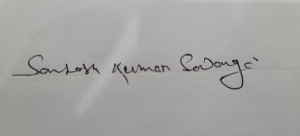 Santosh Kumar Sadangi